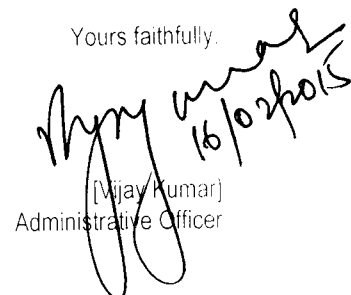 Yours faithfully.
Vijay Kumar
16/02/2015
[Vijay Kumar]
Administrative Officer